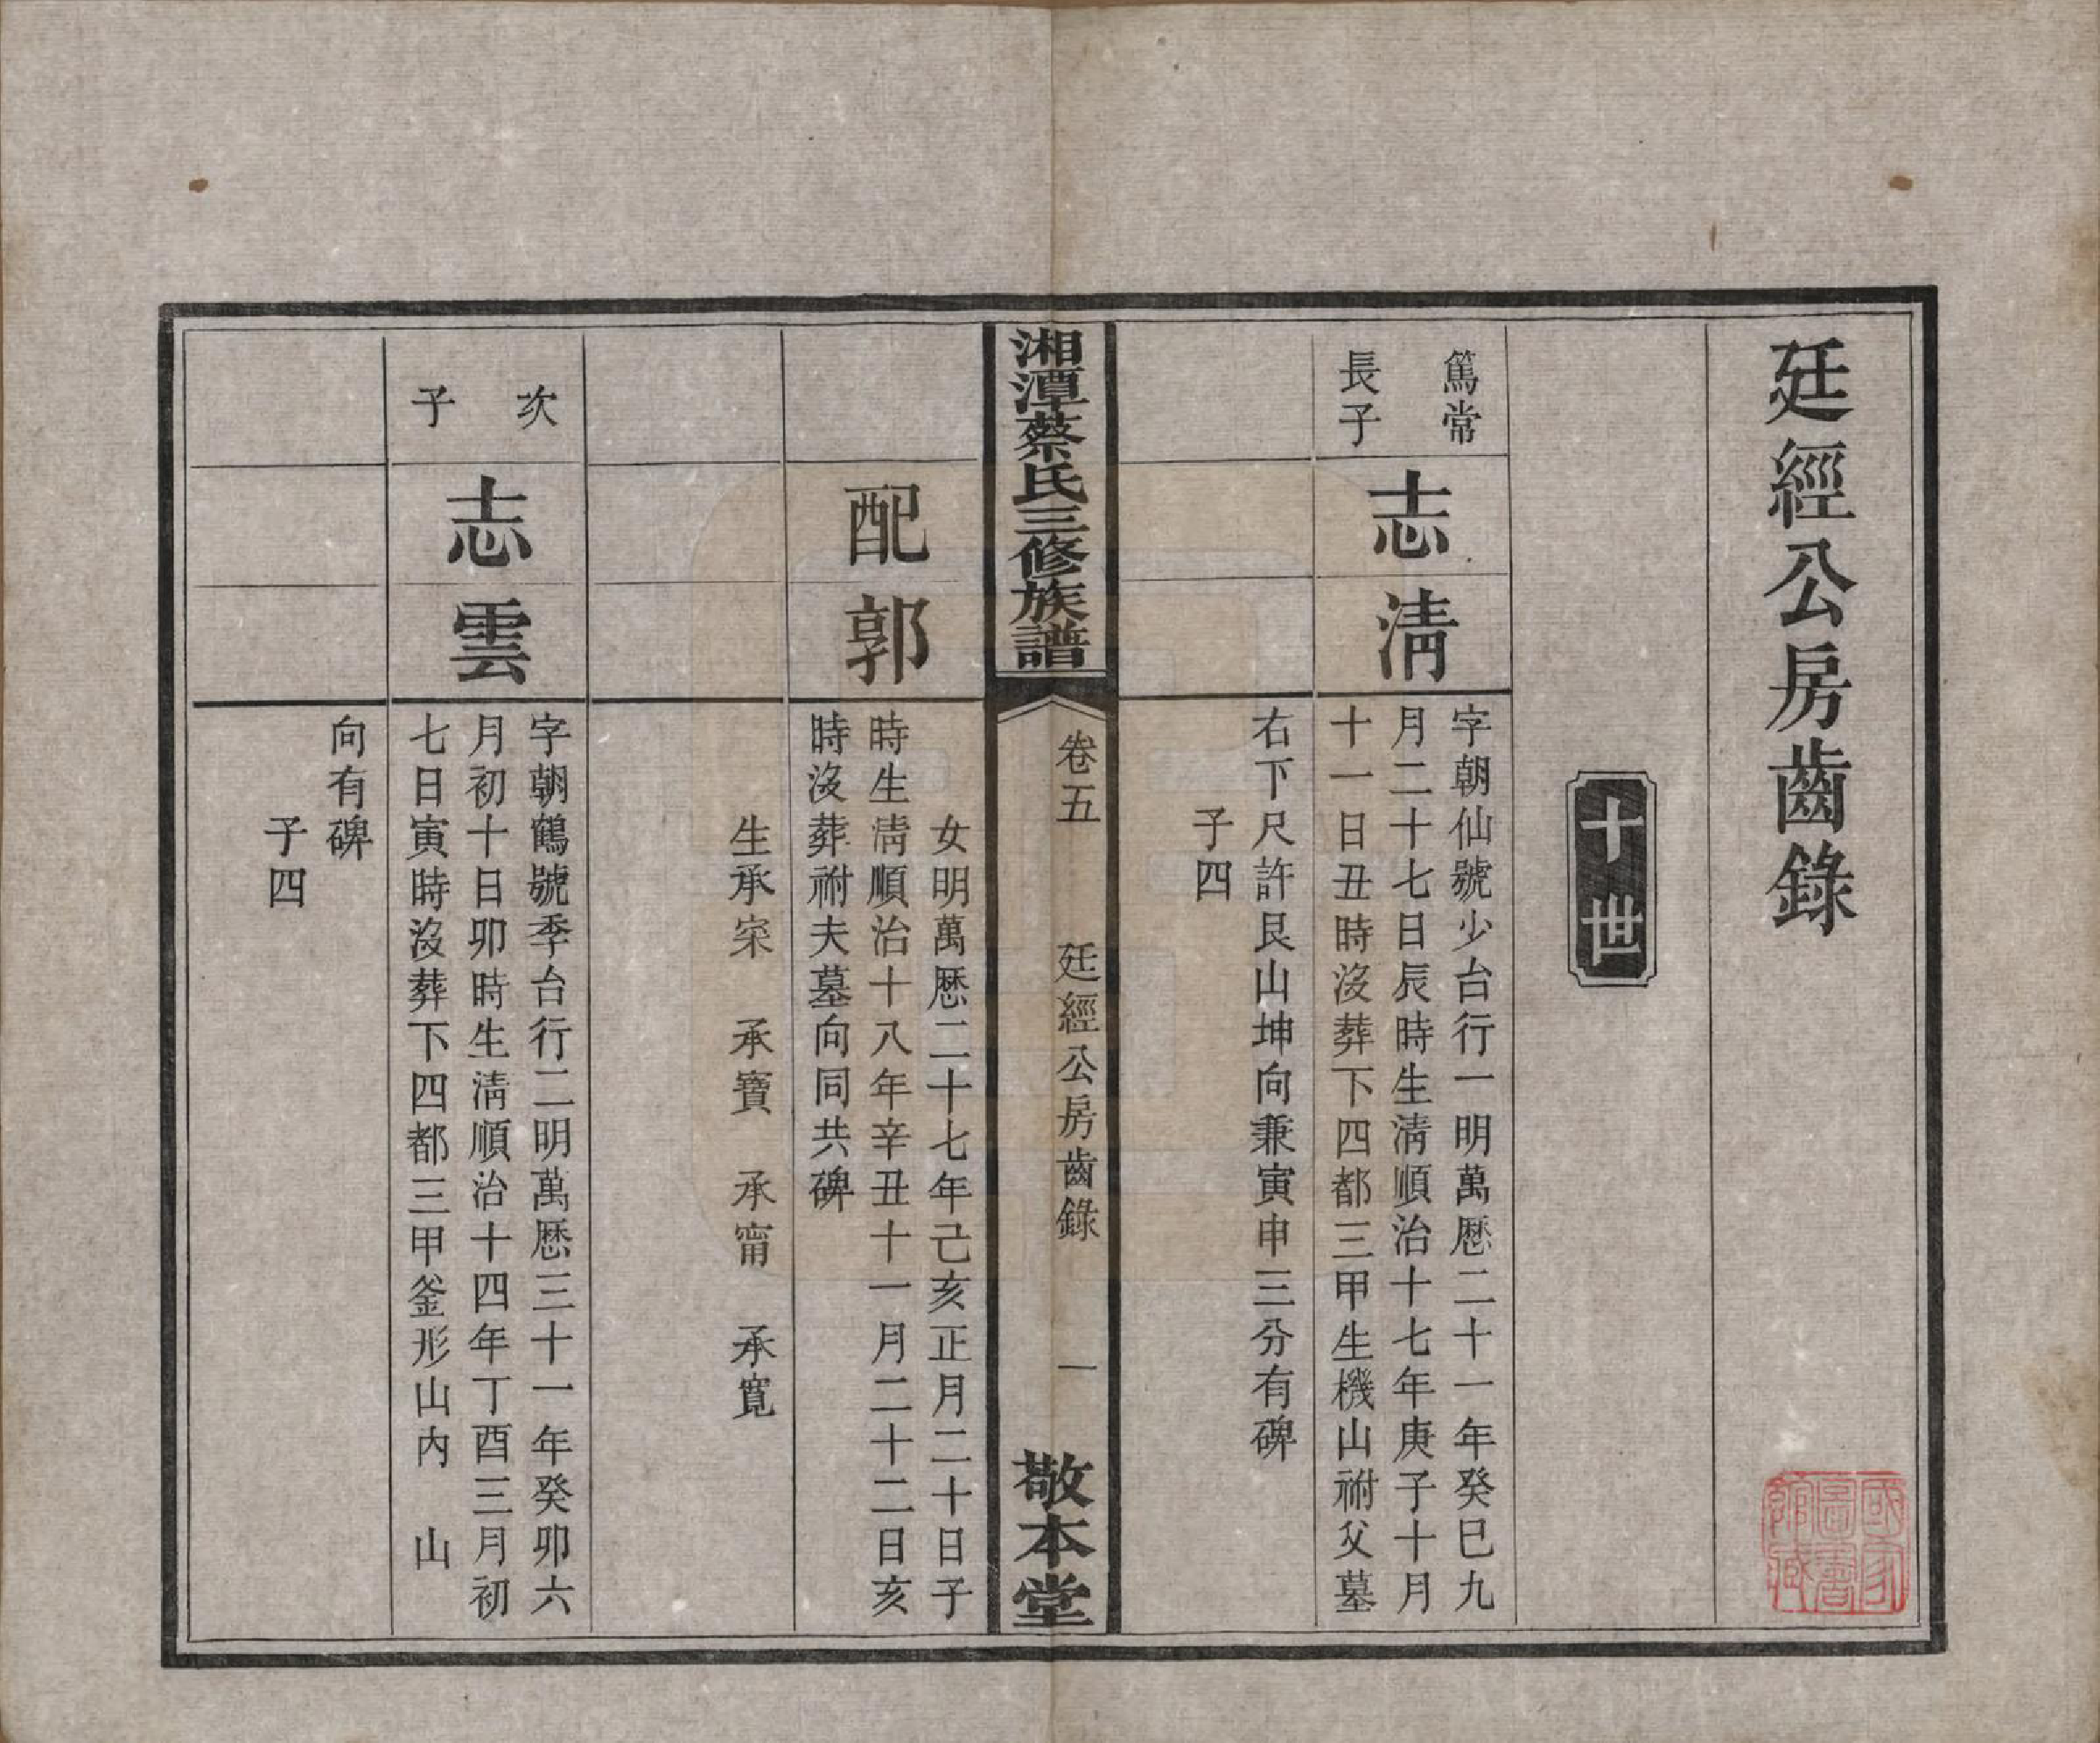 廷經公房齒錄
十世
篤常
長子
志清
字朝仙號少台行一明萬厯二十一年癸巳九
月二十七日辰時生清順治十七年庚子十月
十一日丑時沒葬下四都三甲生機山祔父墓
右下尺許艮山坤向兼寅申三分有碑
子四
湘潭蔡氏三修族譜
卷五
廷經公房齒錄
一
敬本堂
配郭
女明萬厯二十七年己亥正月二十日子
時生清順治十八年辛丑十一月二十二日亥
時沒葬祔夫墓向同共碑
生承寀 承寶 承甯 承寬
次子
志雲
字朝鶴號季台行二明萬厯三十一年癸卯六
月初十日卯時生清順治十四年丁酉三月初
七日寅時沒葬下四都三甲釜形山內 山
向有碑
子四
國家圖書館藏